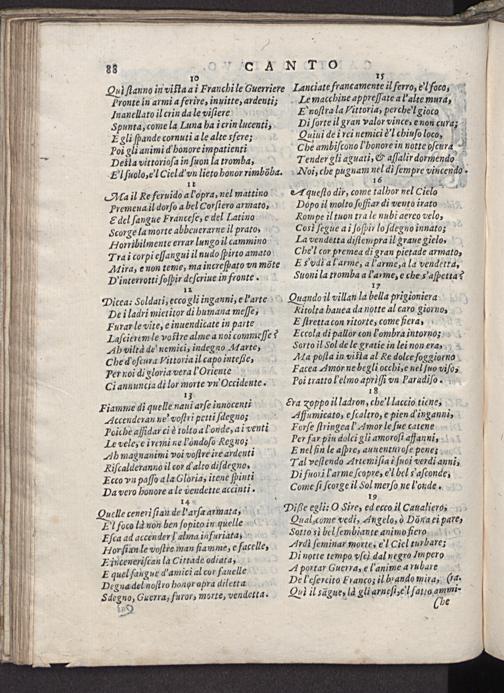 88 CANTO
10
Quì stanno in vista a i Franchi le Guerriere
Pronte in armi a ferire, inuitte, ardenti;
Inanellato il crin da le visiere
Spunta, come la Luna ha i crin lucenti,
E gli spande cornuti a le alte sfere;
Poi gli animi d'honore impatienti
Desta vittoriosa in suon la tromba,
E'l suolo, e'l Ciel d'vn lieto honor rimbõba.
11
Ma il Re feruido a l'opra, nel mattino
Premeua il dorso a bel Corsiero armato,
E del sangue Francese, e del Latino
Scorge la morte abbeuerarne il prato,
Horribilmente errar lungo il cammino
Tra i corpi essangui il nudo spirto amato
Mira, e non teme, ma increspato vn mõte
D'interrotti sospir descriue in fronte.
12
Dicea: Soldati, ecco gli inganni, e l'arte
De i ladri mietitor di humana messe,
Furar le vite, e inuendicate in parte
Lascierem le vostre alme a noi commesse?
Ah viltà de' nemici, indegno Marte,
Che d'oscura Vittoria il capo intesse,
Per noi di gloria vera l'Oriente
Ci annuncia di lor morte vn'Occidente.
13
Fiamme di quelle naui arse innocenti
Accenderan ne' vostri petti sdegno;
Poiche assidar ci è tolto a l'onde, a i venti
Le vele, e i remi ne l'òndoso Regno;
Ah magnanimi voi vostre ire ardenti
Riscalderanno il cor d'alto disdegno,
Ecco vn passo a la Gloria, itene spinti
Da vero honore a le vendette accinti.
14
Quelle ceneri sian de l'arsa armata,
E'l foco là non ben sopito in quelle
Esca ad accender l'alma infuriata,
Hor sian le vostre man fiamme, e facelle,
E inceneriscan la Cittade odiata,
E quel sangue d'amici al cor fauelle
Degna del nostro honor opra diletta
Sdegno, Guerra, furor, morte, vendetta.
Qui
15
Lanciate francamente il ferro, e'l foco,
Le macchine appressate a l'alte mura,
E' nostra la Vittoria, perche'l gioco
Di sorte il gran valor vince, e non cura;
Quiui de i rei nemici è'l chiuso loco,
Che ambiscono l'honore in notte oscura
Tender gli aguati, & assalir dormendo
Noi, che pugnam nel dì sempre vincendo.
16
A questo dir, come talhor nel Cielo
Dopo il molto soffiar di vento irato
Rompe il tuon tra le nubi aereo velo,
Così segue a i sospir lo sdegno innato;
La vendetta distempra il graue gielo,
Che'l cor premea di gran pietade armato,
E s'vdì a l'arme, a l'arme, a la vendetta,
Suoni la tromba a l'arme, e che s'aspetta?
17
Quando il villan la bella prigioniera
Ritolta haueà da notte al caro giorno,
E stretta con ritorte, come fiera,
Eccola di pallor con l'ombra intorno;
Sorto il Sol de le gratie in lei non era,
Ma posta in vista al Re dolce soggiorno
Facea Amor ne begli occhi, e nel suo viso;
Poi tratto l'elmo aprissi vn Paradiso.
18
Era zoppo il ladron, che'l laccio tiene,
Affumicato, e scaltro, e pien d'inganni,
Forse stringea l'Amor le sue catene
Per far piu dolci gli amorosi affanni,
E nel sin le aspre, auuenturose pene;
Tal vestendo Artemisia i suoi verdi anni,
Di fuori l'arme scopre, e'l bel s'asconde,
Come si scorge il Sol merso ne l'onde.
19
Disse egli: O Sire, ed ecco il Caualiero,
Qual, come vedi, Angelo, ò Dõna ei pare,
Sotto sì bel sembiante animo fiero
Ardì seminar morte, e'l Ciel turbare;
Di notte tempo vscì dal negro Impero
A portar Guerra, e l'anime a rubare
De l'esercito Franco; il brando mira, (ra.
Quì il sãgue, là gli arnesi, e'l fatto ammi-
Che